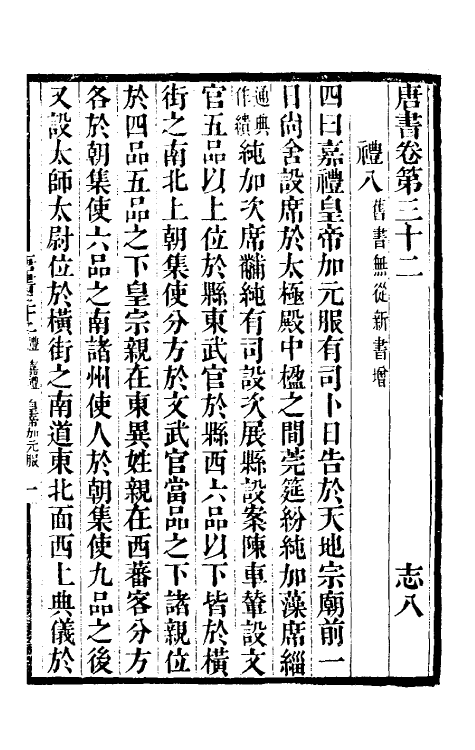 唐書卷第三十二　志八
禮八 舊書無從新書增
四曰嘉禮皇帝加元服有司卜日告於天地宗廟前一
日尙舍設席於太極殿中楹之間莞筵紛純加藻席緇
通典作繢 純加次席黼純有司設次展縣設案陳車輦設文
官五品以上位於縣東武官於縣西六品以下皆於橫
街之南北上朝集使分方於文武官當品之下諸親位
於四品五品之下皇宗親在東異姓親在西蕃客分方
各於朝集使六品之南諸州使人於朝集使九品之後
又設太師太尉位於橫街之南道東北面西上典儀於
唐書三十二 禮 嘉禮 皇帝加元服 一